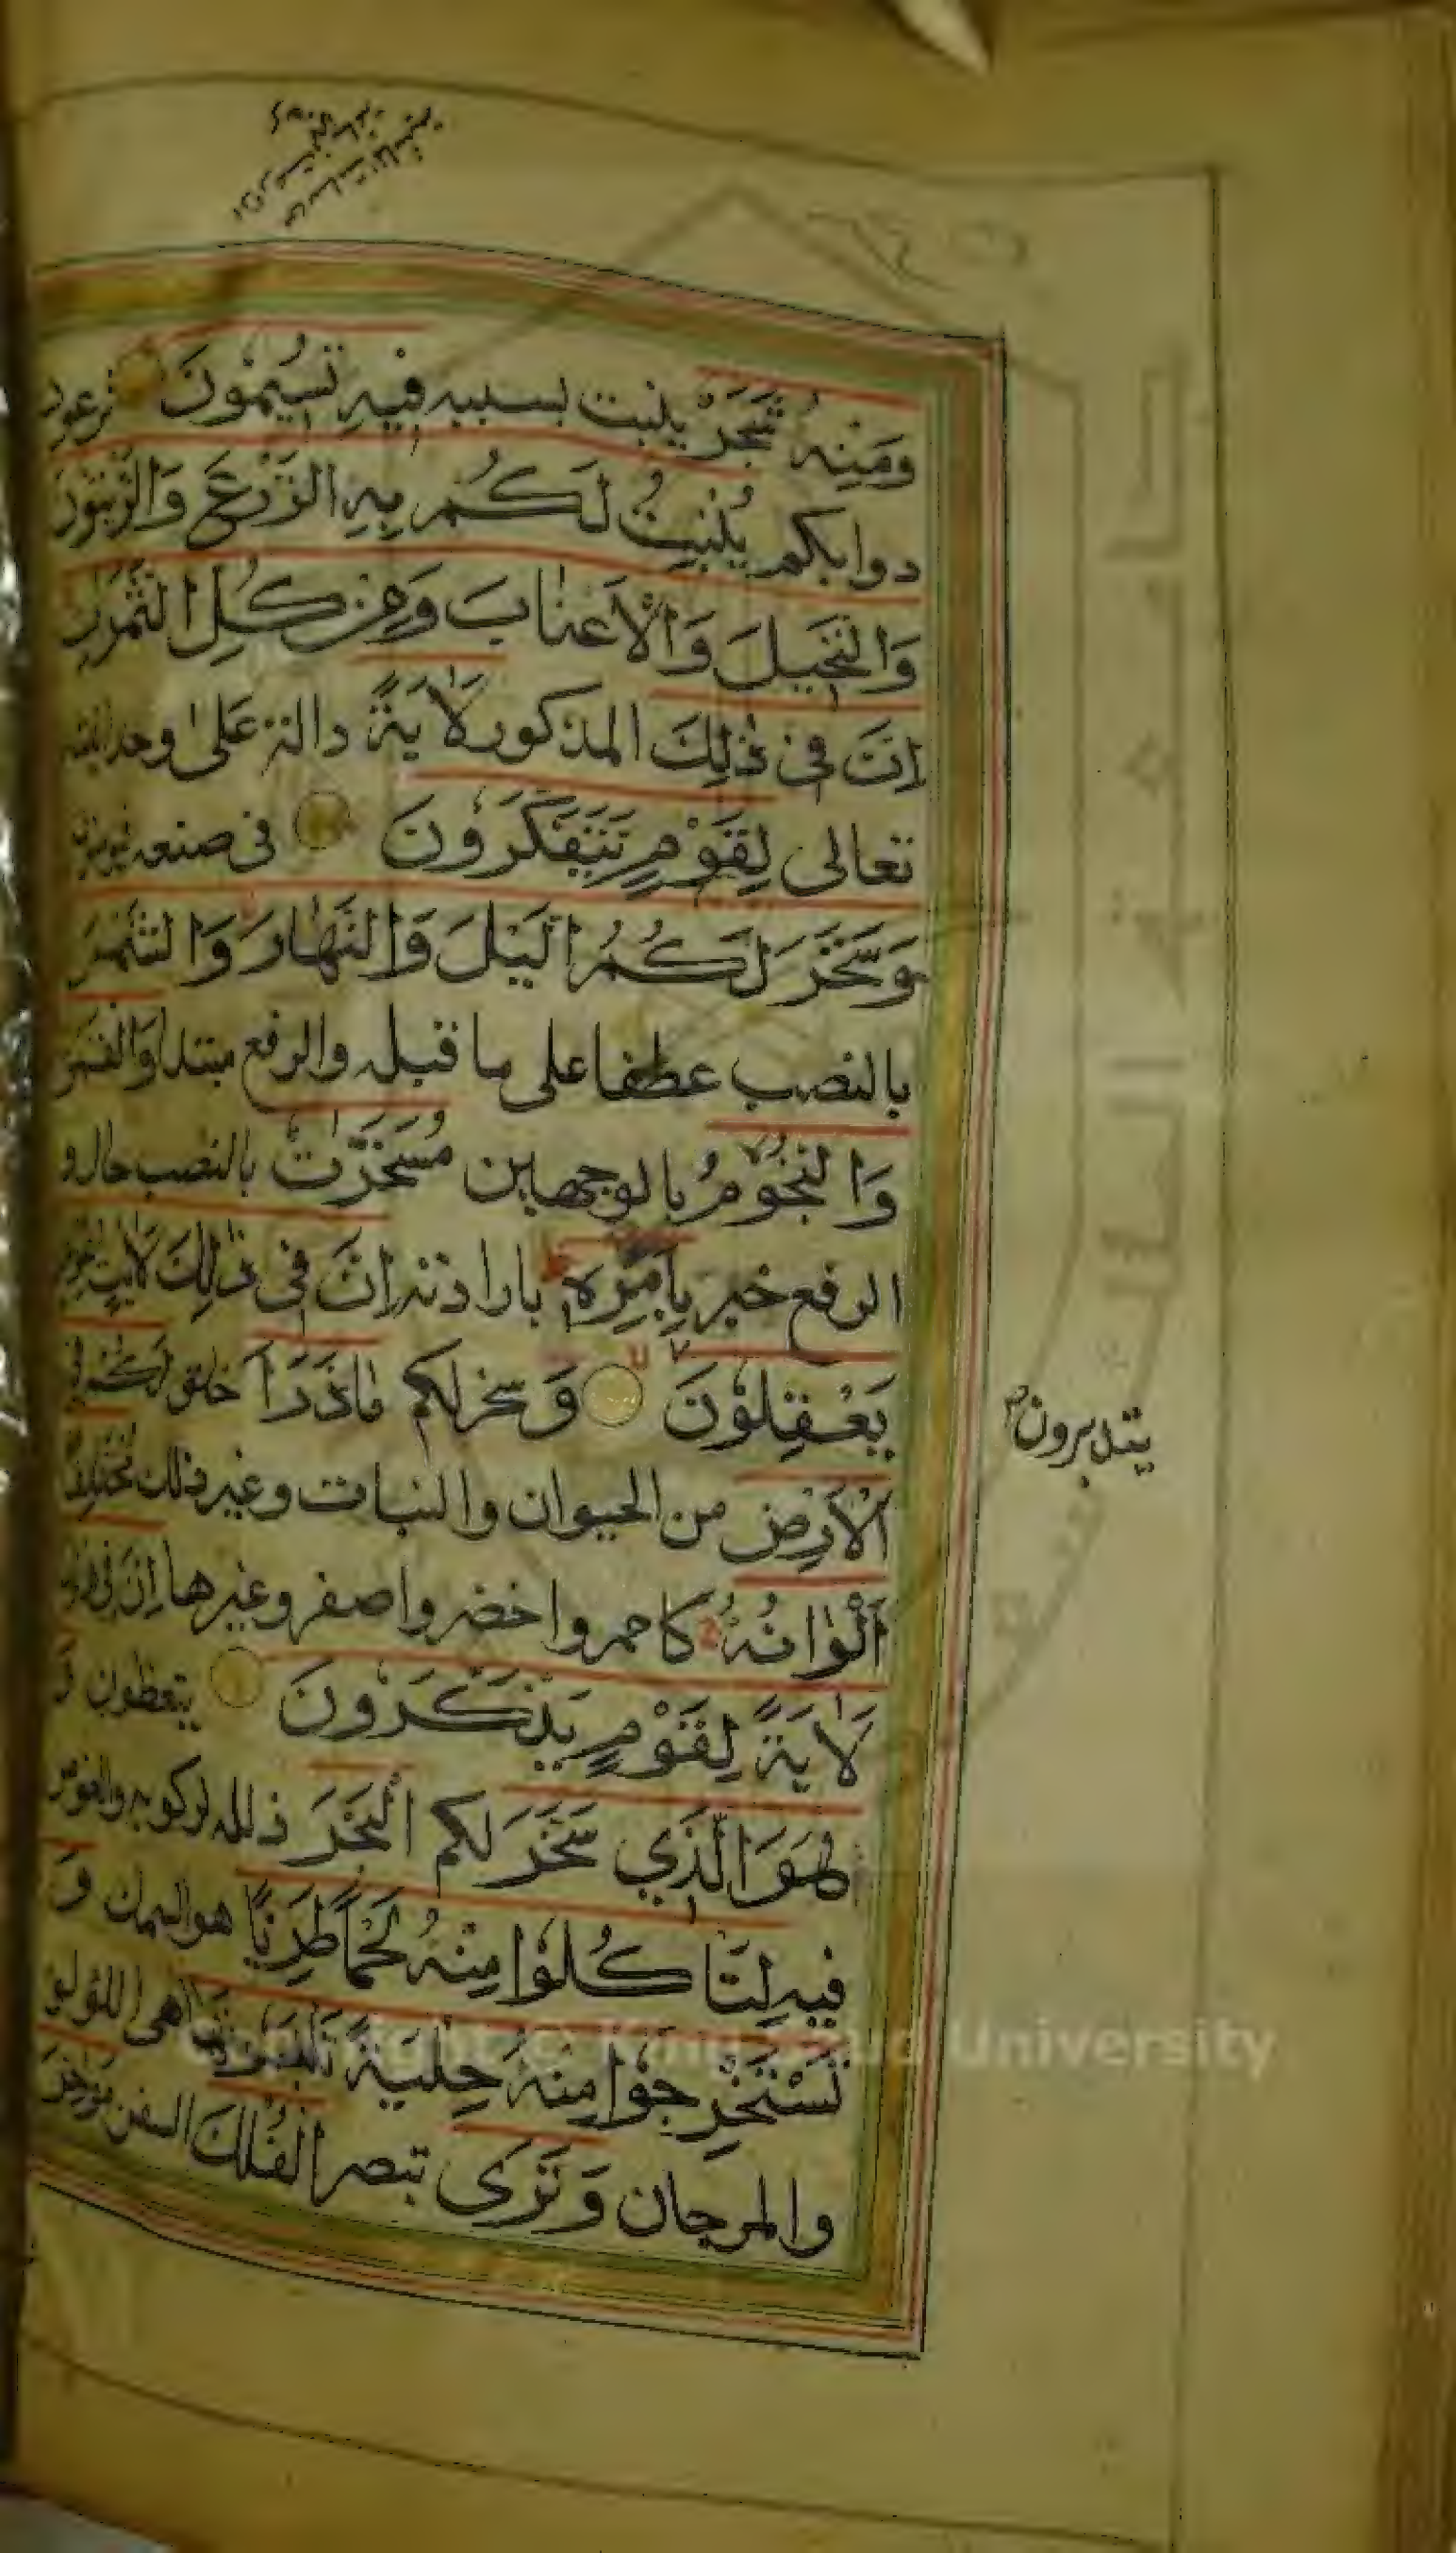 وَمِنْهُ شَجَرٌ ينبت بسببه فِيهِ تُسِيمُونَ ترعون
دوابكم يُنْبِتُ لَكُمْ بِهِ الزَّرْعَ وَالزَّيْتُونَ
وَالنَّخِيلَ وَالْأَعْنَابَ وَمِنْ كُلِّ الثَّمَرَاتِ
إِنَّ فِي ذَٰلِكَ المذكور لَآيَةً دالة على وحدانيته
تعالى لِقَوْمٍ يَتَفَكَّرُونَ فى صنعه فيؤمنون
وَسَخَّرَ لَكُمُ الَّيْلَ وَالنَّهَارَ وَالشَّمْسَ
بالنصب عطفا على ما قبله والرفع مبتدا وَالْقَمَرَ
وَالنُّجُومُ بالوجهين مُسَخَّرَاتٌ بالنصب حال و
الرفع خبر بِأَمْرِهِ بارادته إِنَّ فِي ذَٰلِكَ لَآيَاتٍ لِقَوْمٍ
يَعْقِلُونَ وَ سخر لكم مَا ذَرَأَ خلق لَكُمْ فِي
الْأَرْضِ من الحيوان والنبات وغير ذلك مُخْتَلِفًا
أَلْوَانُهُ كاحمر واخضر واصفر وغيرها إِنَّ فِي ذَٰلِكَ
لَآيَةً لِقَوْمٍ يَذَّكَّرُونَ يتعظون وَ
هُوَ الَّذِي سَخَّرَ لكم الْبَحْرَ ذلله لركوبه والغوص
فيه لِتَأْكُلُوا مِنْهُ لَحْمًا طَرِيًّا هو السمك وَ
تَسْتَخْرِجُوا مِنْهُ حِلْيَةً تَلْبَسُونَهَا هى اللؤلؤ
والمرجان وَتَرَى تبصر الْفُلْكَ السفن مَوَاخِرَ
يتدبرون
Copyright © King Saud University